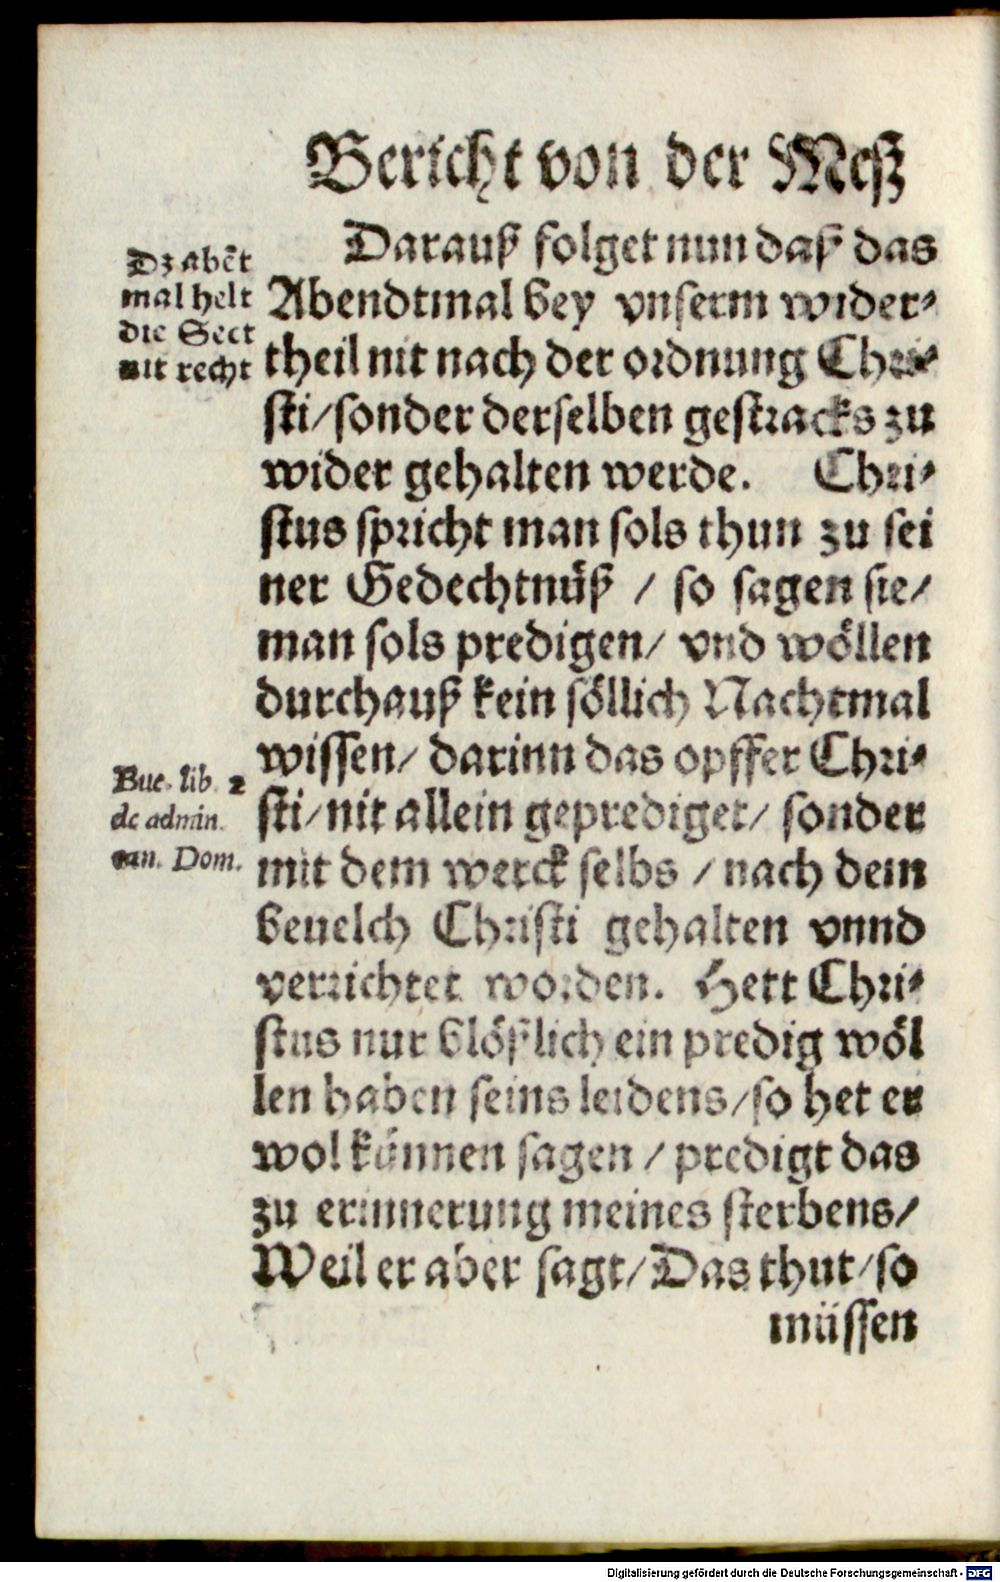 Bericht von der Meß
Darauß folget nun daß das
Abendtmal bey vnserm wider-
theil nit nach der ordnung Chri-
sti/sonder derselben gestracks zu
wider gehalten werde. Chri-
stus spricht man sols thun zu sei
ner Gedechtnüß / so sagen sie/
man sols predigen/ vnd wöllen
durchauß kein söllich Nachtmal
wissen/ darinn das opffer Chri-
sti/nit allein geprediget/ sonder
mit dem werck selbs / nach dem
beuelch Christi gehalten vnnd
verrichtet worden. Hett Chri-
stus nur blößlich ein predig wöl
len haben seins leidens/so het er
wol künnen sagen / predigt das
zu erinnerung meines sterbens/
Weil er aber sagt/Das thut/so
müssen
Dz abēt
mal helt
die Sect
nit recht
Buc. lib. 2
de admin.
can. Dom.
Digitalisierung gefördert durch die Deutsche Forschungsgemeinschaft - DFG